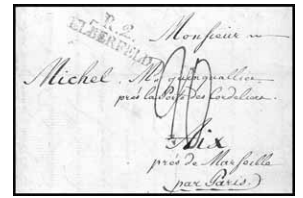 R. 2.
ELBERFELD
Monsieur
Michel. Md quinquallier
près la Porte des Cordeliers.
20
Aix
près de Marseille
par Paris.